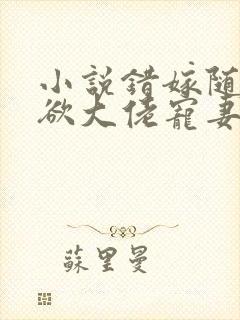 小說錯嫁隨
欲大佬寵妻
蘇里曼